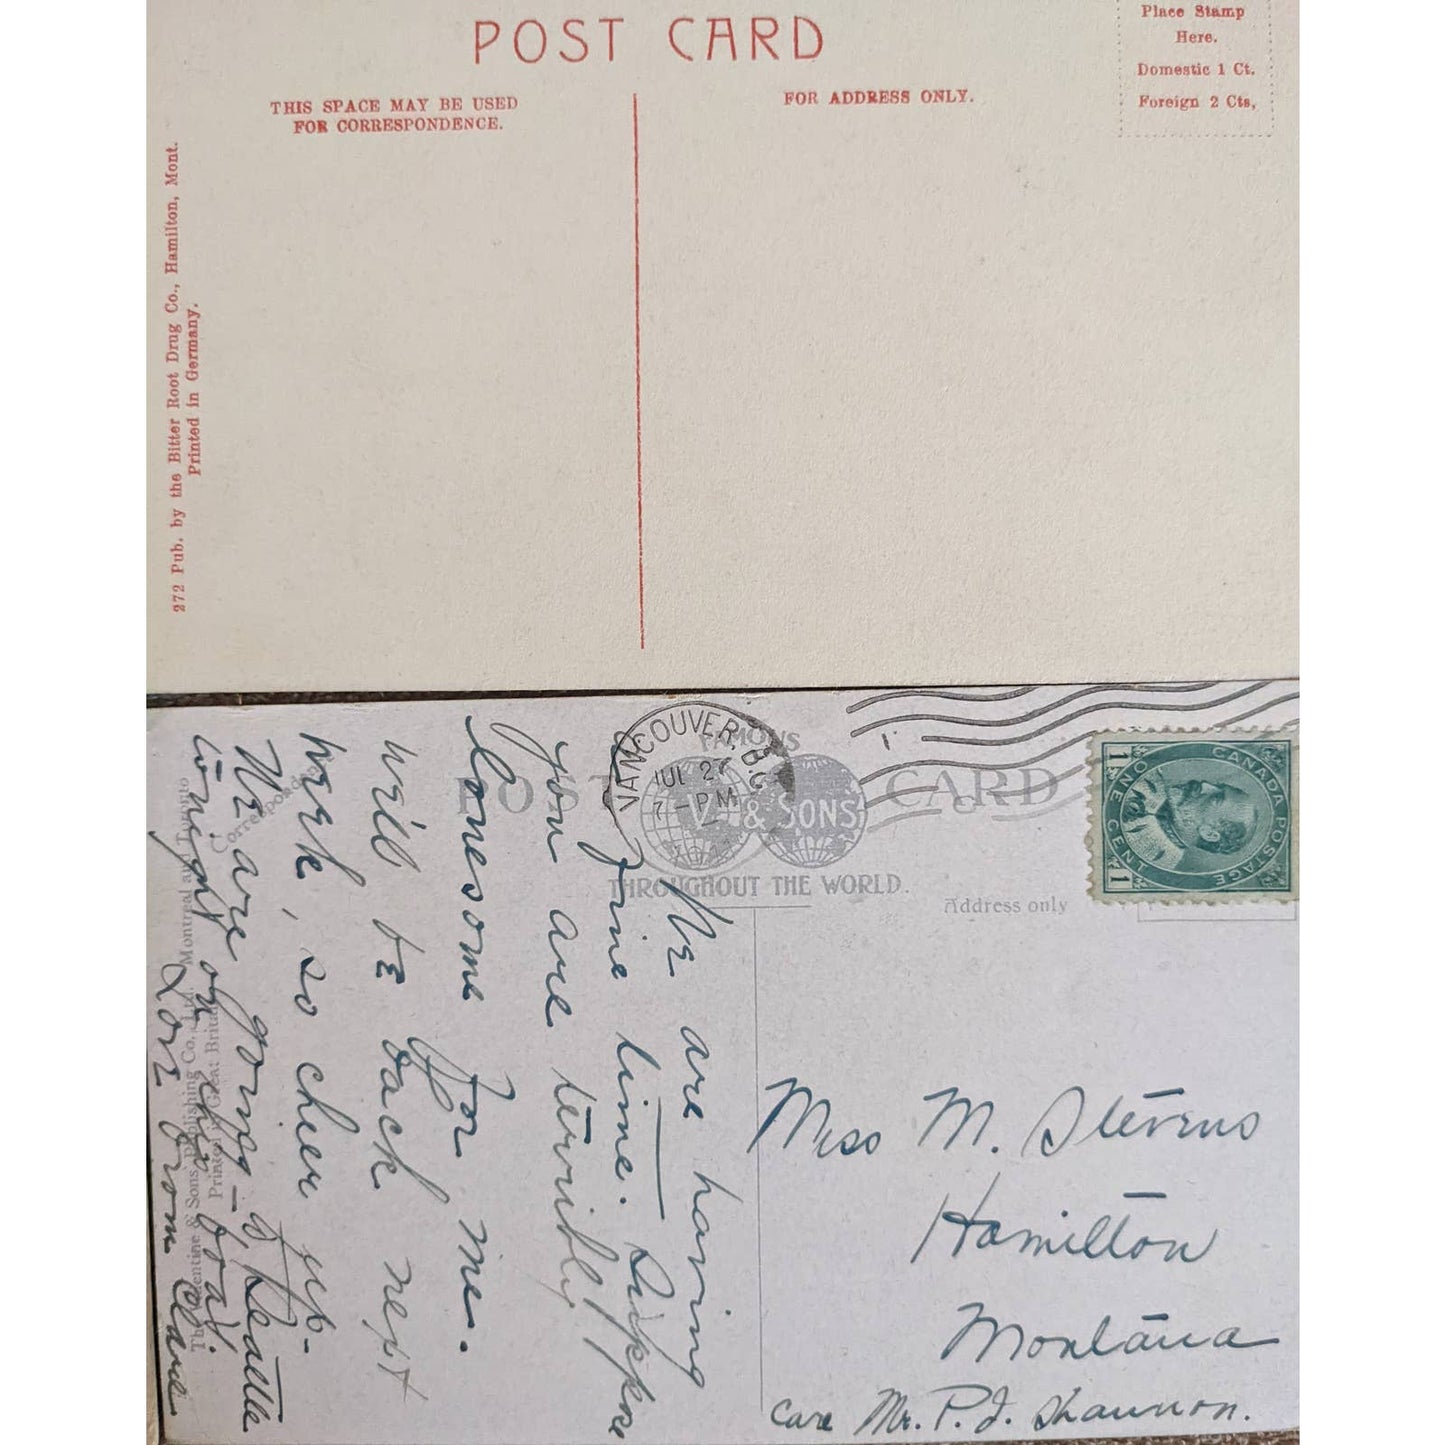 POST CARD
Place Stamp
Here.
Domestic 1 Ct.
Foreign 2 Cts,
THIS SPACE MAY BE USED
FOR CORRESPONDENCE.
FOR ADDRESS ONLY.
272 Pub. by the Bitter Root Drug Co., Hamilton, Mont.
Printed in Germany.
VANCOUVER, B.C.
JUL 27
7-PM
1911
POST CARD
FAMOUS
V & SONS
THROUGHOUT THE WORLD.
Correspondence
Address only
CANADA POSTAGE
ONE CENT
1 1
We are having
a fine time. Suppose
you are terribly
lonesome for me.
Will be back next
week, so cheer up-
We are going to Seattle
tonight on the boat.
Lov from Clare
Miss M. Stevens
Hamilton
Montana
Care Mr. P. J. Shannon.
The Valentine & Sons Publishing Co., Ltd. Montreal and Toronto
Printed in Great Britain